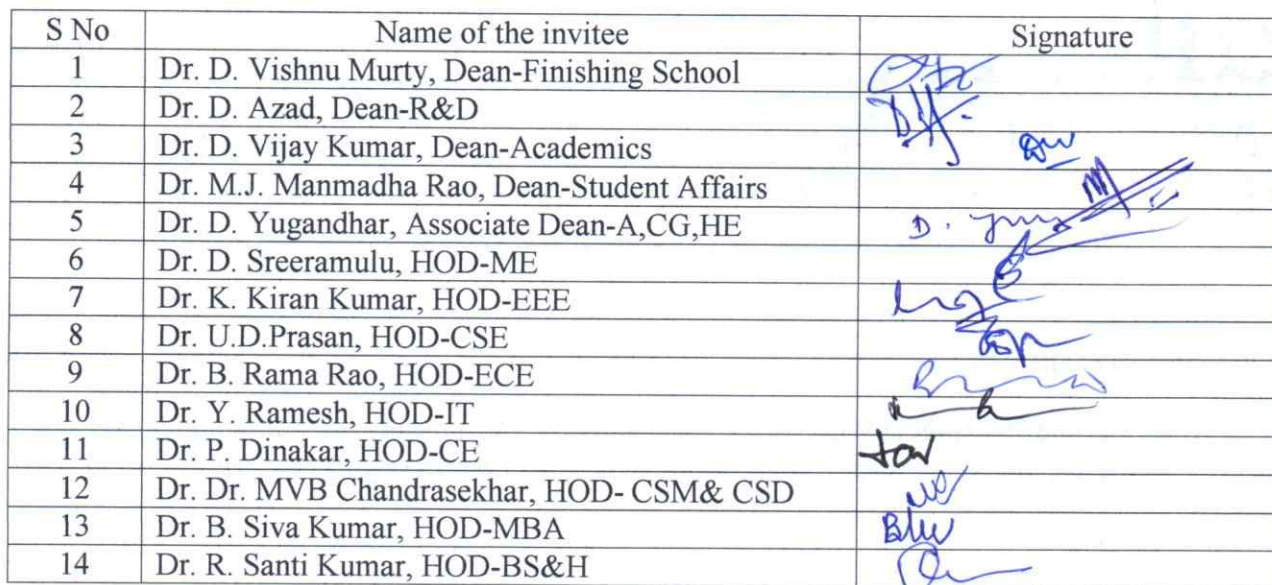 S No Name of the invitee Signature
1 Dr. D. Vishnu Murty, Dean-Finishing School
2 Dr. D. Azad, Dean-R&D
3 Dr. D. Vijay Kumar, Dean-Academics
4 Dr. M.J. Manmadha Rao, Dean-Student Affairs
5 Dr. D. Yugandhar, Associate Dean-A,CG,HE D.
6 Dr. D. Sreeramulu, HOD-ME
7 Dr. K. Kiran Kumar, HOD-EEE
8 Dr. U.D.Prasan, HOD-CSE
9 Dr. B. Rama Rao, HOD-ECE
10 Dr. Y. Ramesh, HOD-IT
11 Dr. P. Dinakar, HOD-CE
12 Dr. Dr. MVB Chandrasekhar, HOD- CSM& CSD
13 Dr. B. Siva Kumar, HOD-MBA
14 Dr. R. Santi Kumar, HOD-BS&H